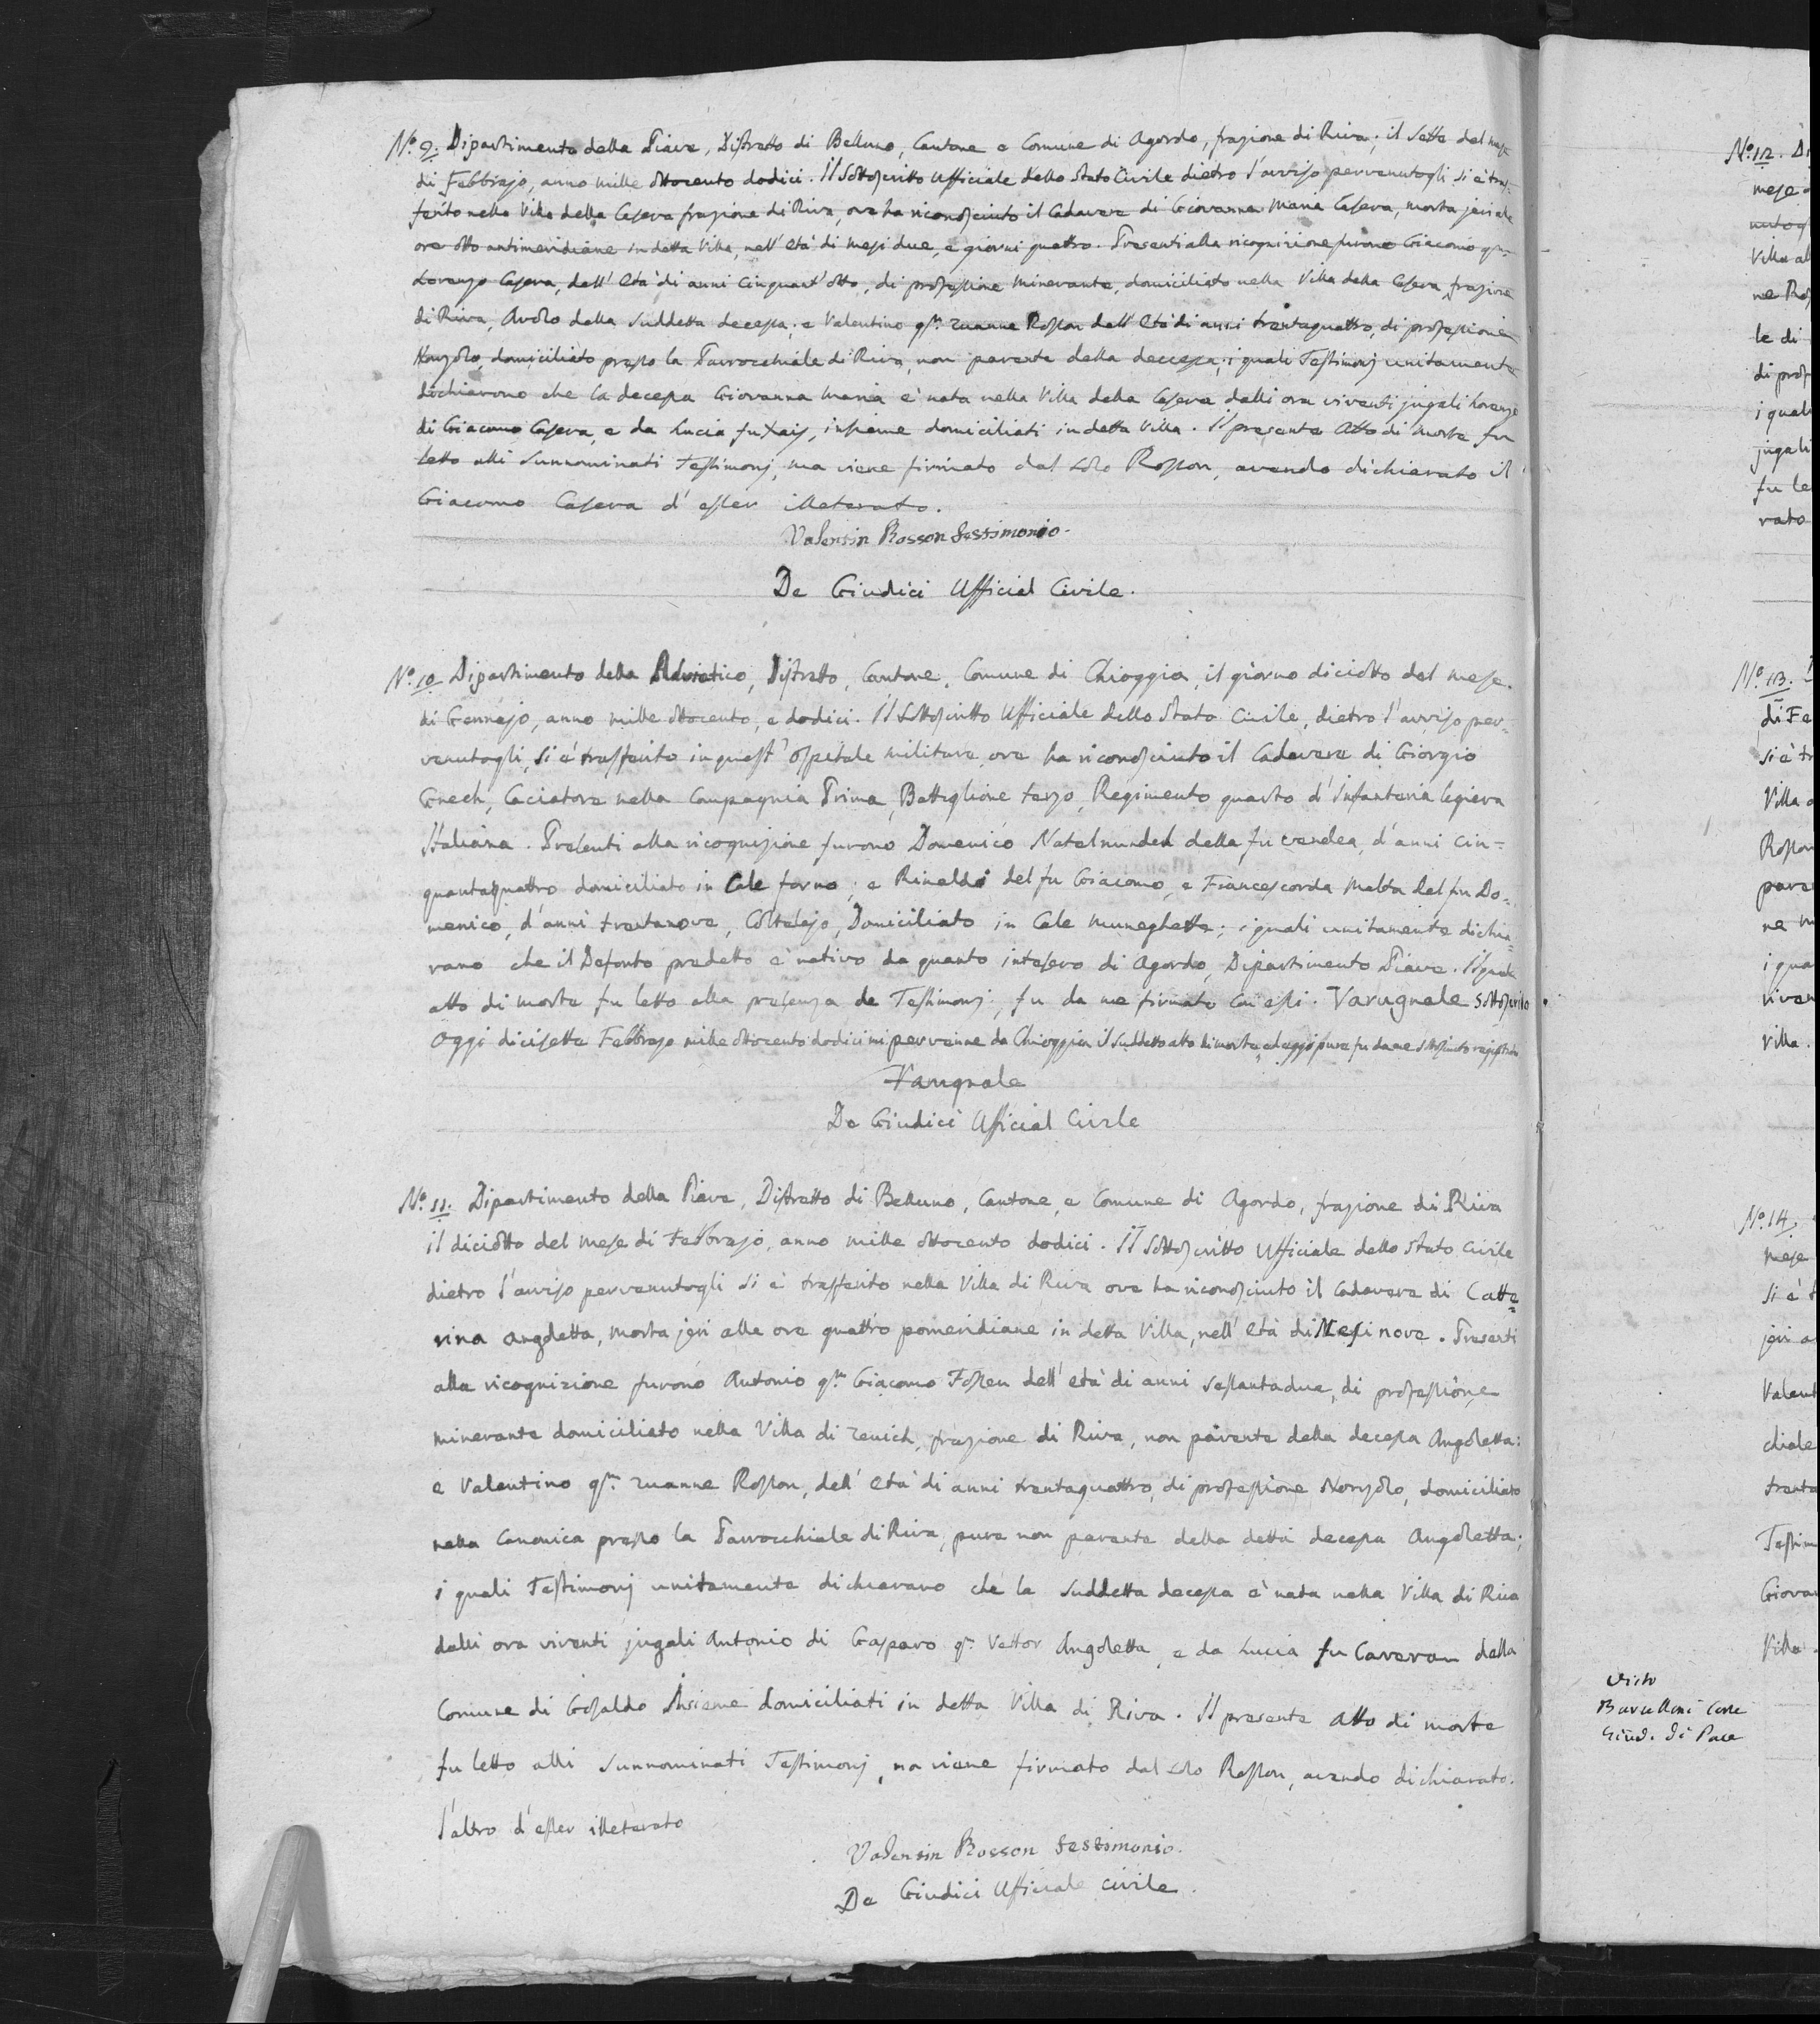 N.º 9. Dipartimento della Piave, Distretto di Belluno, Cantone e Comune di Agordo, frazione di Riva; il Sette del mese
di Febbrajo, anno mille ottocento dodici. Il Sottoscritto Ufficiale dello Stato Civile dietro l'avviso pervenutogli si è tras=
ferito nella Villa della Casera frazione di Riva, ove ha riconosciuto il Cadavere di Giovanna Maria Casera, morta jeri alle
ore otto antimeridiane in detta Villa, nell'età di mesi due, e giorni quattro. Presenti alla ricognizione furono Giacomo qm
Lorenzo Casera, dell'età di anni cinquant'otto, di professione Minerante, domiciliato nella Villa della Casera, frazione
di Riva, Avolo della suddetta decessa; e Valentino qm Zuanne Rosson dell'età di anni trentaquattro, di professione
Nonzolo, domiciliato presso la Parrocchiale di Riva, non parente della decessa; i quali Testimonj unitamente
dichiarono che la decessa Giovanna Maria è nata nella Villa della Casera dalli ora viventi jugali Lorenzo
di Giacomo Casera, e da Lucia fu Xais, insieme domiciliati in detta Villa. Il presente Atto di morte fu
letto alli sunnominati Testimonj, ma viene firmato dal solo Rosson, avendo dichiarato il
Giacomo Casera d'esser illeterato.
Valentin Rosson testimonio.
De Giudici Ufficial Civile.
N.º 10 Dipartimento della Adriatico, Distretto, Cantone, Comune di Chioggia, il giorno diciotto del mese
di Gennajo, anno mille ottocento, e dodici. Il Sottoscritto Ufficiale dello Stato Civile, dietro l'avviso per=
venutogli, si è trasferito in quest'ospitale militare, ove ha riconosciuto il Cadavere di Giorgio
Gnech, Caciatore nella Compagnia Prima, Battaglione terzo, Regimento quarto d'Infanteria legiera
Italiana. Presenti alla ricognizione furono Domenico della fu d'anni cin=
quantaquattro domiciliato in Cale forno; e Rinaldo del fu Giacomo, e Malta del fu Do=
menico, d'anni trentanove, Domiciliato in Cale Muneghette; i quali unitamente dichia=
rano che il Defonto predetto è nativo da quanto intesero di Agordo, Dipartimento Piave. Il quale
atto di morte fu letto alla presenza de Testimonj, fu da me firmato con essi. Varugnale sottoscrito
Oggi dicisette Febbrajo mille ottocento dodici mi pervenne da Chioggia il suddetto atto di morte, ed oggi pure fu da me sottoscritto registrato
Varugnale
De Giudici Ufficial Civile
N.º 11. Dipartimento della Piave, Distretto di Belluno, Cantone, e Comune di Agordo, frazione di Riva
il diciotto del mese di Febbrajo, anno mille ottocento dodici. Il Sottoscritto Ufficiale dello Stato Civile
dietro l'avviso pervenutogli si è trasferito nella Villa di Riva ove ha riconosciuto il Cadavere di Catte=
rina Angoletta, morta jeri alle ore quattro pomeridiane in detta Villa, nell'età di Mesi nove. Presenti
alla ricognizione furono Antonio qm Giacomo Fossen dell'età di anni sessantadue, di professione
minerante domiciliato nella Villa di Zenich, frazione di Riva, non parente della decessa Angoletta;
e Valentino qm Zuanne Rosson, dell'età di anni trentaquattro, di professione Nonzolo, domiciliato
nella Canonica presso la Parrocchiale di Riva, pure non parente della detta decessa Angoletta;
i quali Testimonj unitamente dichiarano che la suddetta decessa è nata nella Villa di Riva
dalli ora viventi jugali Antonio di Gasparo qm Vettor Angoletta, e da Lucia fu Caveran della
Comune di Gosaldo Insieme domiciliati in detta Villa di Riva. Il presente Atto di morte
fu letto alli sunnominati Testimonj, ma viene firmato dal solo Rosson, avendo dichiarato
l'altro d'esser illeterato
Valentin Rosson testimonio.
De Giudici Ufficiale Civile.
N.º 12. Di
mese
nutog
Villa al
ne Ros
le di
di prof
i quali
jugali
fu le
rato
N.º 13.
di Fe
si è tr
Villa
Rosson
pare
ne m
i qua
viven
Villa.
N.º 14.
mese
si è t
jeri a
Valent
chiale
trenta
Testim
Giovan
Villa
Visto
Giud. di Pace